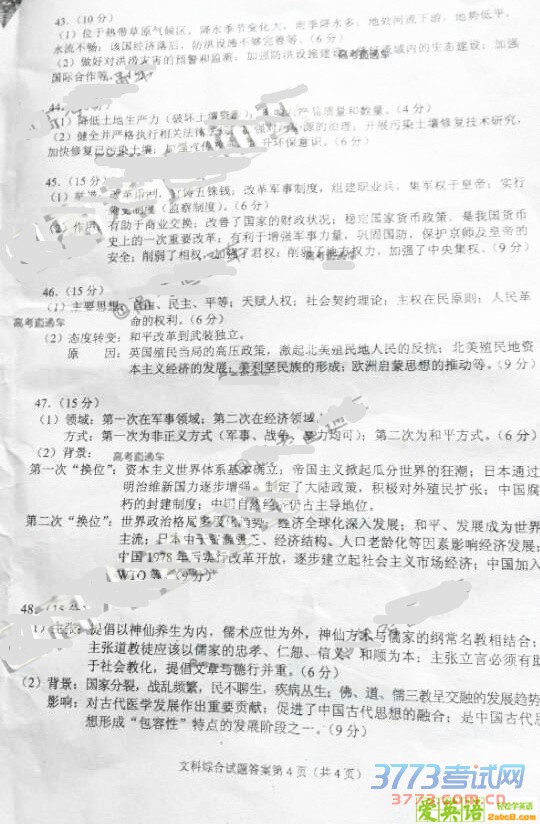 43.（10 分）
（1）位于热带草原气候区，降水季节变化大，雨季降水多；地处河流下游，地势低平，
水流不畅；该国经济落后，防洪设施不够完善等。（6 分）
（2）做好对洪涝灾害的预警和监测；加强防洪设施建设；流域内的生态建设；加强
高考直通车
国际合作等。
44.
（1）降低土地生产力（破坏土壤资源）；产品质量和数量。（4 分）
（2）健全并严格执行相关法律；强对污染源的治理；开展污染土壤修复技术研究，
加快修复已污染土壤；加强环保意识。（6 分）
45.（15 分）
（1）五铢钱；改革军事制度，组建职业兵，集军权于皇帝；实行
制度（监察制度）。（6 分）
（2）作用：有助于商业交换；改善了国家的财政状况；稳定国家货币政策，是我国货币
史上的一次重要改革；有利于增强军事力量，巩固国防，保护京师及皇帝的
安全；削弱了相权，加强了君权；削弱了地方权力，加强了中央集权。（9 分）
46.（15 分）
（1）主要思想：自由、民主、平等；天赋人权；社会契约理论；主权在民原则；人民革
高考直通车
命的权利。（6 分）
（2）态度转变：和平改革到武装独立。
原　因：英国殖民当局的高压政策，激起北美殖民地人民的反抗；北美殖民地资
本主义经济的发展；美利坚民族的形成；欧洲启蒙思想的推动等。（9 分）
47.（15 分）
（1）领域：第一次在军事领域；第二次在经济领域。
方式：第一次为非正义方式（军事、战争、暴力均可）；第二次为和平方式。（6 分）
（2）背景：
高考直通车
第一次“换位”：资本主义世界体系基本确立；帝国主义掀起瓜分世界的狂潮；日本通过
明治维新国力逐步增强。制定了大陆政策，积极对外殖民扩张；中国腐
朽的封建制度；中国自然经济仍占主导地位。
第二次“换位”：世界政治格局多极化趋势，经济全球化深入发展；和平、发展成为世界
主流；日本由于经济结构、人口老龄化等因素影响经济发展；
中国 1978 年实行改革开放，逐步建立起社会主义市场经济；中国加入
WTO 等（9 分）
48.
（1）主张：提倡以神仙养生为内，儒术应世为外，神仙方术与儒家的纲常名教相结合；
主张道教徒应该以儒家的忠孝、仁恕、信义、和顺为本；主张立言必须有助
于社会教化，提倡文章与德行并重。（6 分）
（2）背景：国家分裂，战乱频繁，民不聊生，疾病丛生；佛、道、儒三教呈交融的发展趋势
影响：对古代医学发展作出重要贡献；促进了中国古代思想的融合；是中国古代思
想形成“包容性”特点的发展阶段之一。（9 分）
文科综合试题答案第 4 页（共 4 页）
3773考试网
www.3773.com
爱英语
轻松学英语
2abc8.com